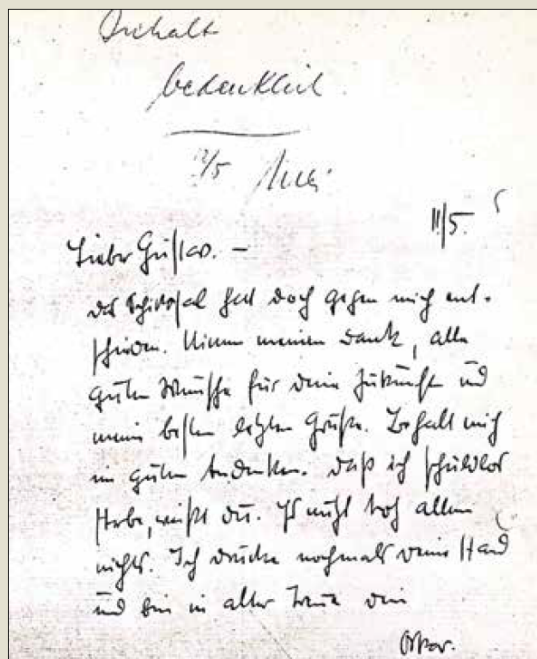 Inhalt
bedenklich.
12/5
11/5.
Lieber Gustav. –
das Schicksal hat doch gegen mich ent-
schieden. Nimm meinen Dank, alle
guten Wünsche für deine Zukunft und
meine besten letzten Grüße. Behalt mich
im guten Andenken. Daß ich schuldlos
sterbe, weißt du. Es nützt trotz allem
nichts. Ich drücke nochmals deine Hand
und bin in alter Treue dein
Oskar.